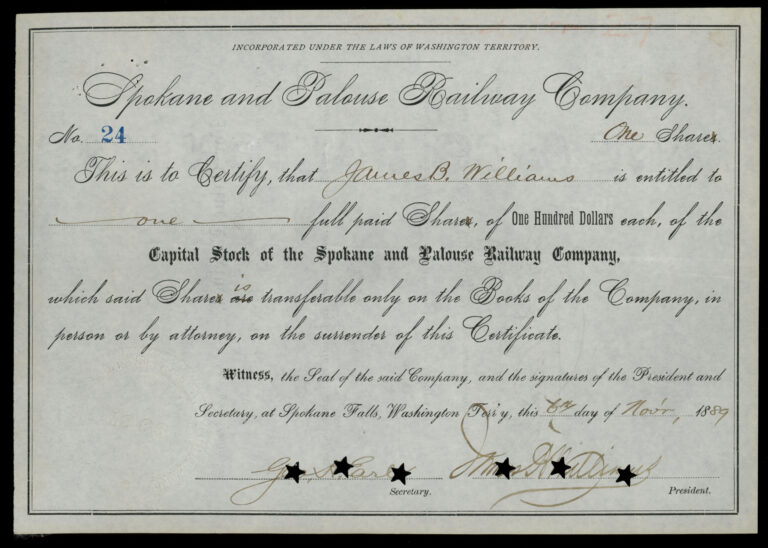 INCORPORATED UNDER THE LAWS OF WASHINGTON TERRITORY.
Spokane and Palouse Railway Company.
No. 24 One Share
This is to Certify, that James B. Williams is entitled to
one full paid Share, of One Hundred Dollars each, of the
Capital Stock of the Spokane and Palouse Railway Company,
is
which said Share are transferable only on the Books of the Company, in
person or by attorney, on the surrender of this Certificate.
Witness, the Seal of the said Company, and the signatures of the President and
Secretary, at Spokane Falls, Washington Terr'y, this day of Nov'r, 1889
Secretary. President.